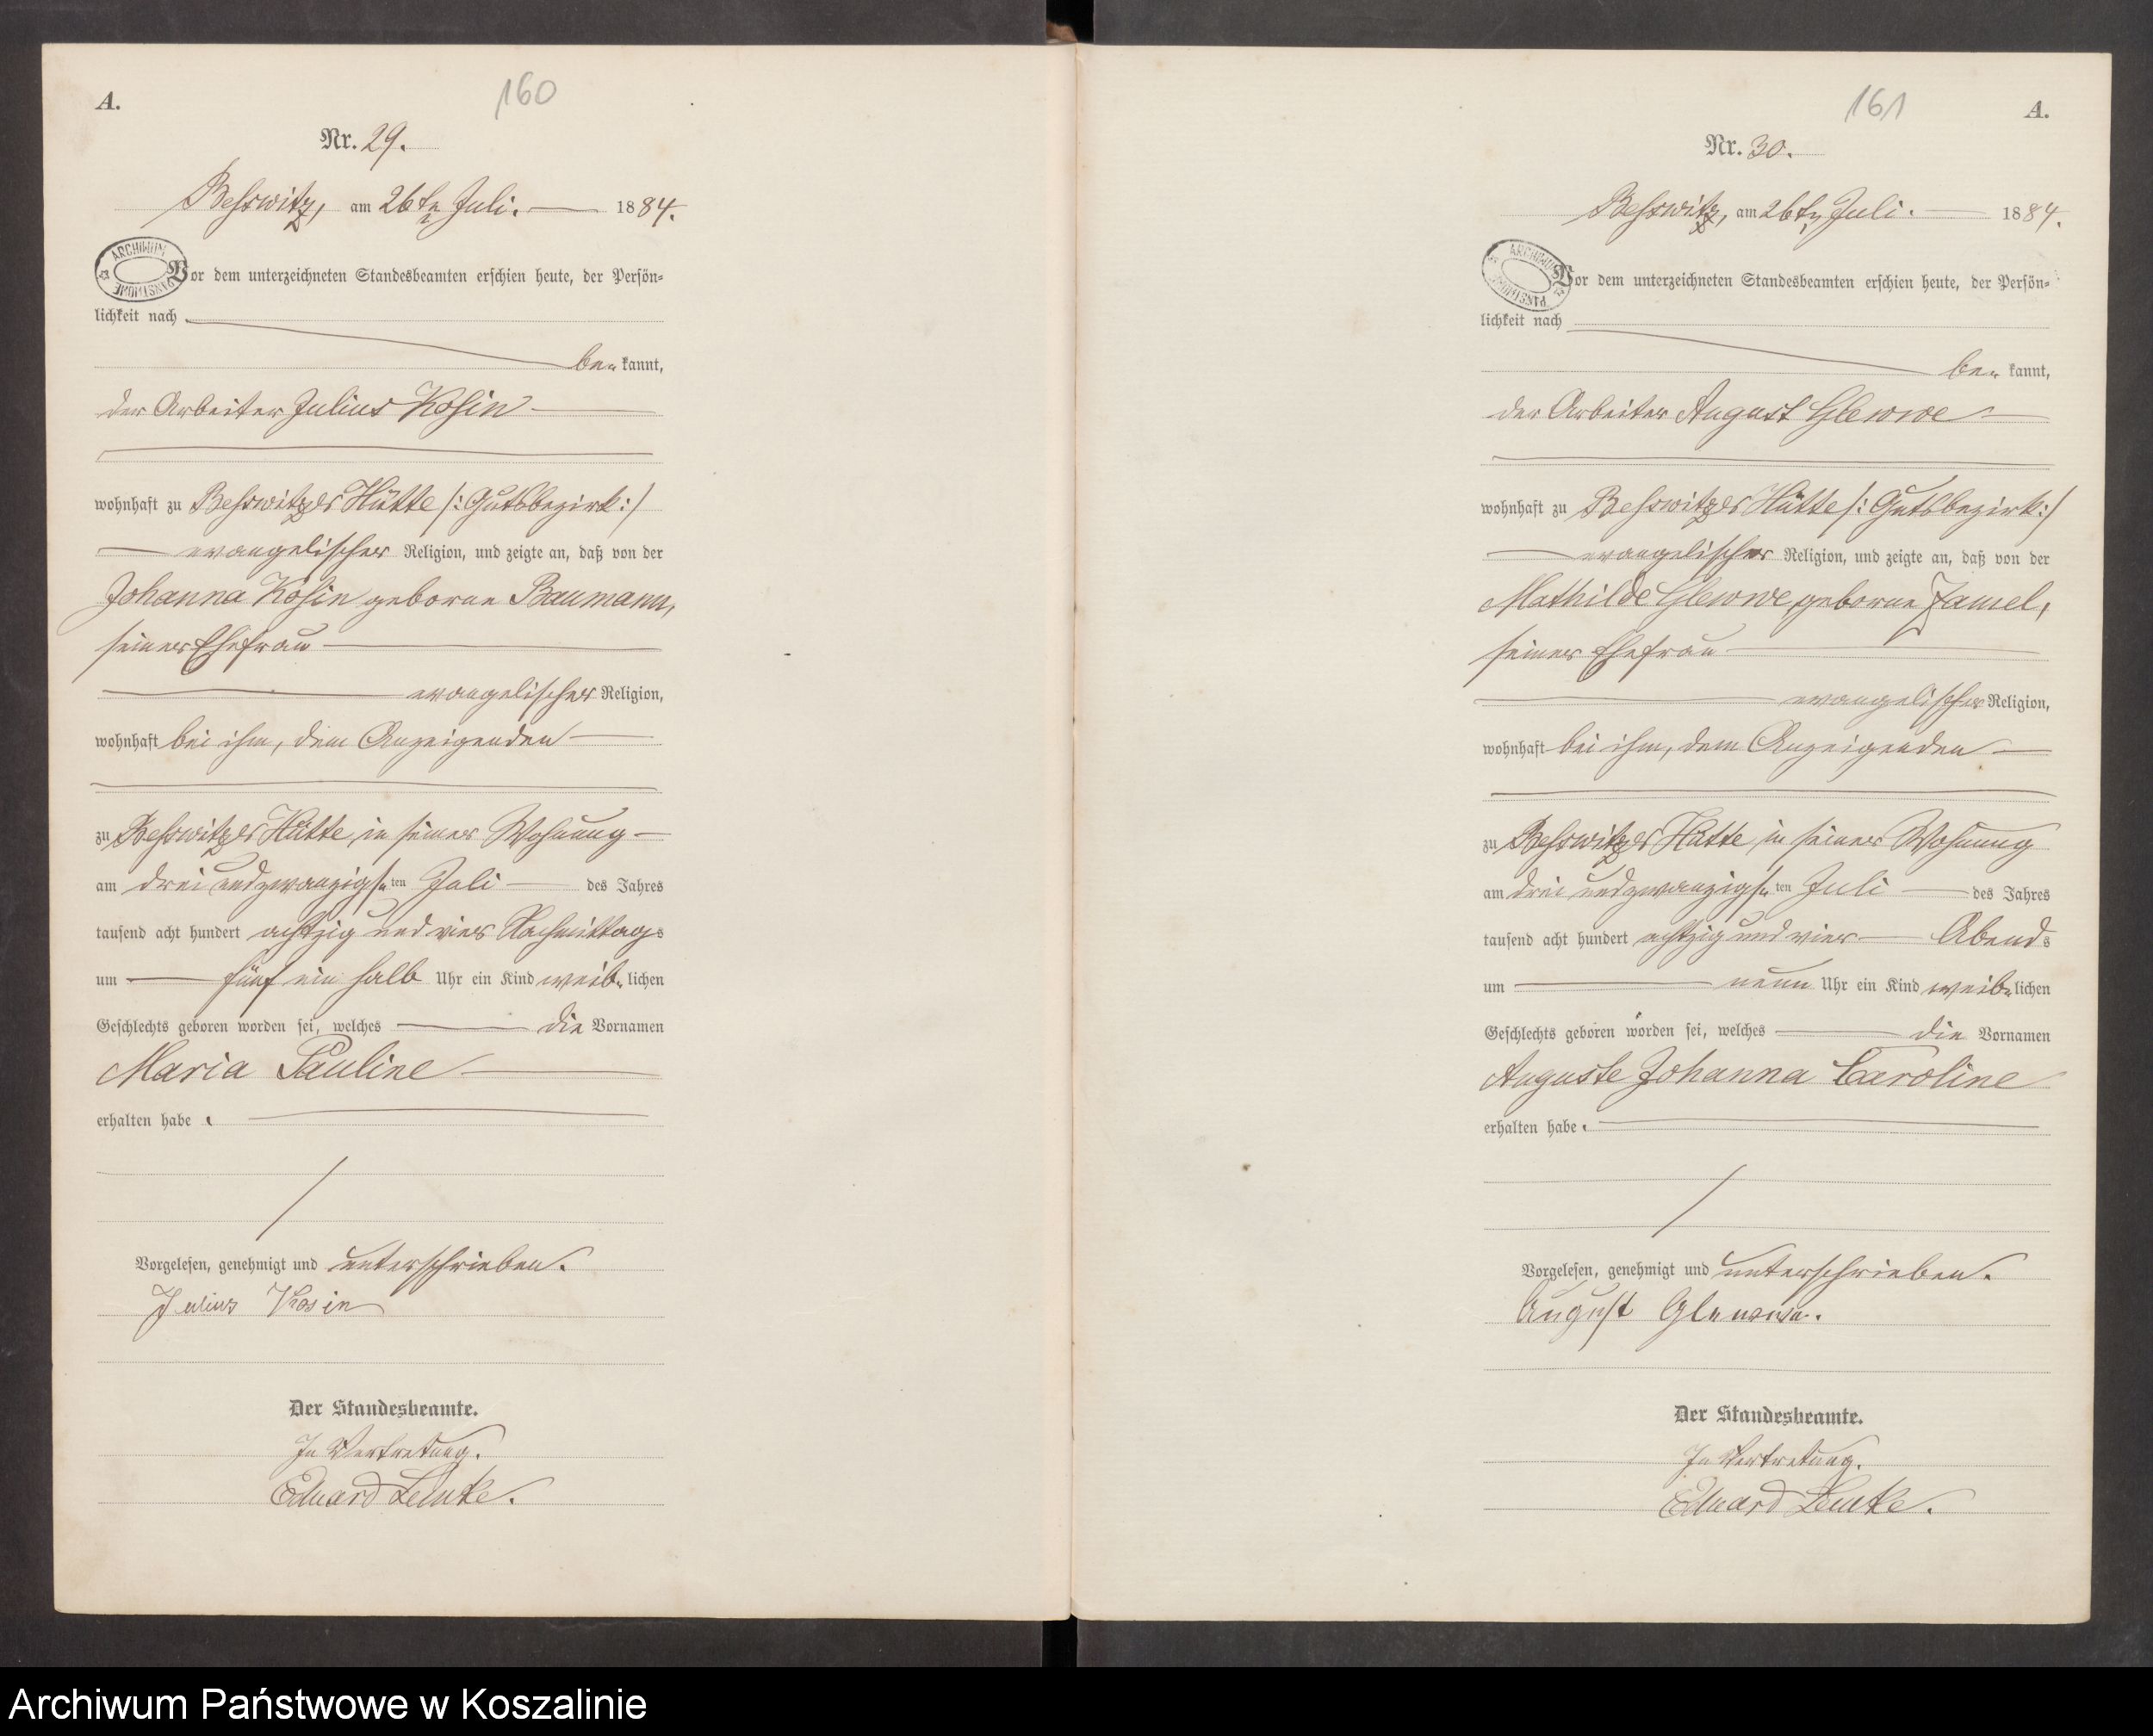 A.
160
Nr. 29.
Besswitz, am 26ten Juli. 1884.
ARCHIWUM PAŃSTWOWE
Vor dem unterzeichneten Standesbeamten erschien heute, der Persön-
lichkeit nach
be- kannt,
der Arbeiter Julius Kosin
wohnhaft zu Besswitzer Hütte /: Gutsbezirk :/
evangelischer Religion, und zeigte an, daß von der
Johanna Kosin geborne Baumann,
seiner Ehefrau
evangelischer Religion,
wohnhaft bei ihm, dem Anzeigenden
zu Besswitzer Hütte, in seiner Wohnung
am drei und zwanzigsten Juli des Jahres
tausend acht hundert achtzig und vier Nachmittags
um fünf ein halb Uhr ein Kind weib- lichen
Geschlechts geboren worden sei, welches die Vornamen
Maria Pauline
erhalten habe.
Vorgelesen, genehmigt und unterschrieben.
Julius Kosin
Der Standesbeamte.
In Vertretung.
Eduard Lemke.
161
A.
Nr. 30.
Besswitz, am 26ten Juli. 1884.
ARCHIWUM PAŃSTWOWE
Vor dem unterzeichneten Standesbeamten erschien heute, der Persön-
lichkeit nach
be- kannt,
der Arbeiter August Glewwe
wohnhaft zu Besswitzer Hütte /: Gutsbezirk :/
evangelischer Religion, und zeigte an, daß von der
Mathilde Glewwe, geborne Jamel,
seiner Ehefrau
evangelischer Religion,
wohnhaft bei ihm, dem Anzeigenden
zu Besswitzer Hütte, in seiner Wohnung
am drei und zwanzigsten Juli des Jahres
tausend acht hundert achtzig und vier Abends
um neun Uhr ein Kind weib- lichen
Geschlechts geboren worden sei, welches die Vornamen
Auguste Johanna Caroline
erhalten habe.
Vorgelesen, genehmigt und unterschrieben.
August Glewwe.
Der Standesbeamte.
In Vertretung.
Eduard Lemke.
Archiwum Państwowe w Koszalinie